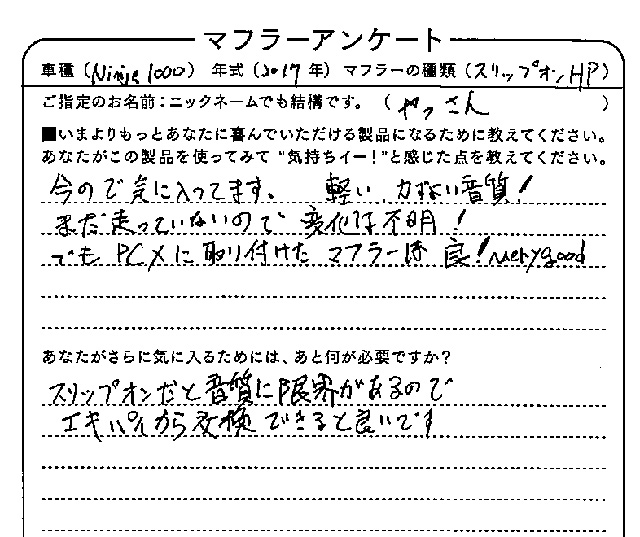 マフラーアンケート
車種（Ninja 1000）年式（2017年）マフラーの種類（スリップオンHP）
ご指定のお名前：ニックネームでも結構です。（やっさん）
■いまよりもっとあなたに喜んでいただける製品になるために教えてください。
あなたがこの製品を使ってみて“気持ちイー！”と感じた点を教えてください。
今ので気に入ってます、軽い、 音質！
まだ走っていないので 変化は不明！
でも PCXに取り付けた マフラーは 良！very good
あなたがさらに気に入るためには、あと何が必要ですか？
スリップオンだと音質に限界があるので
エキパイから交換できると良いです